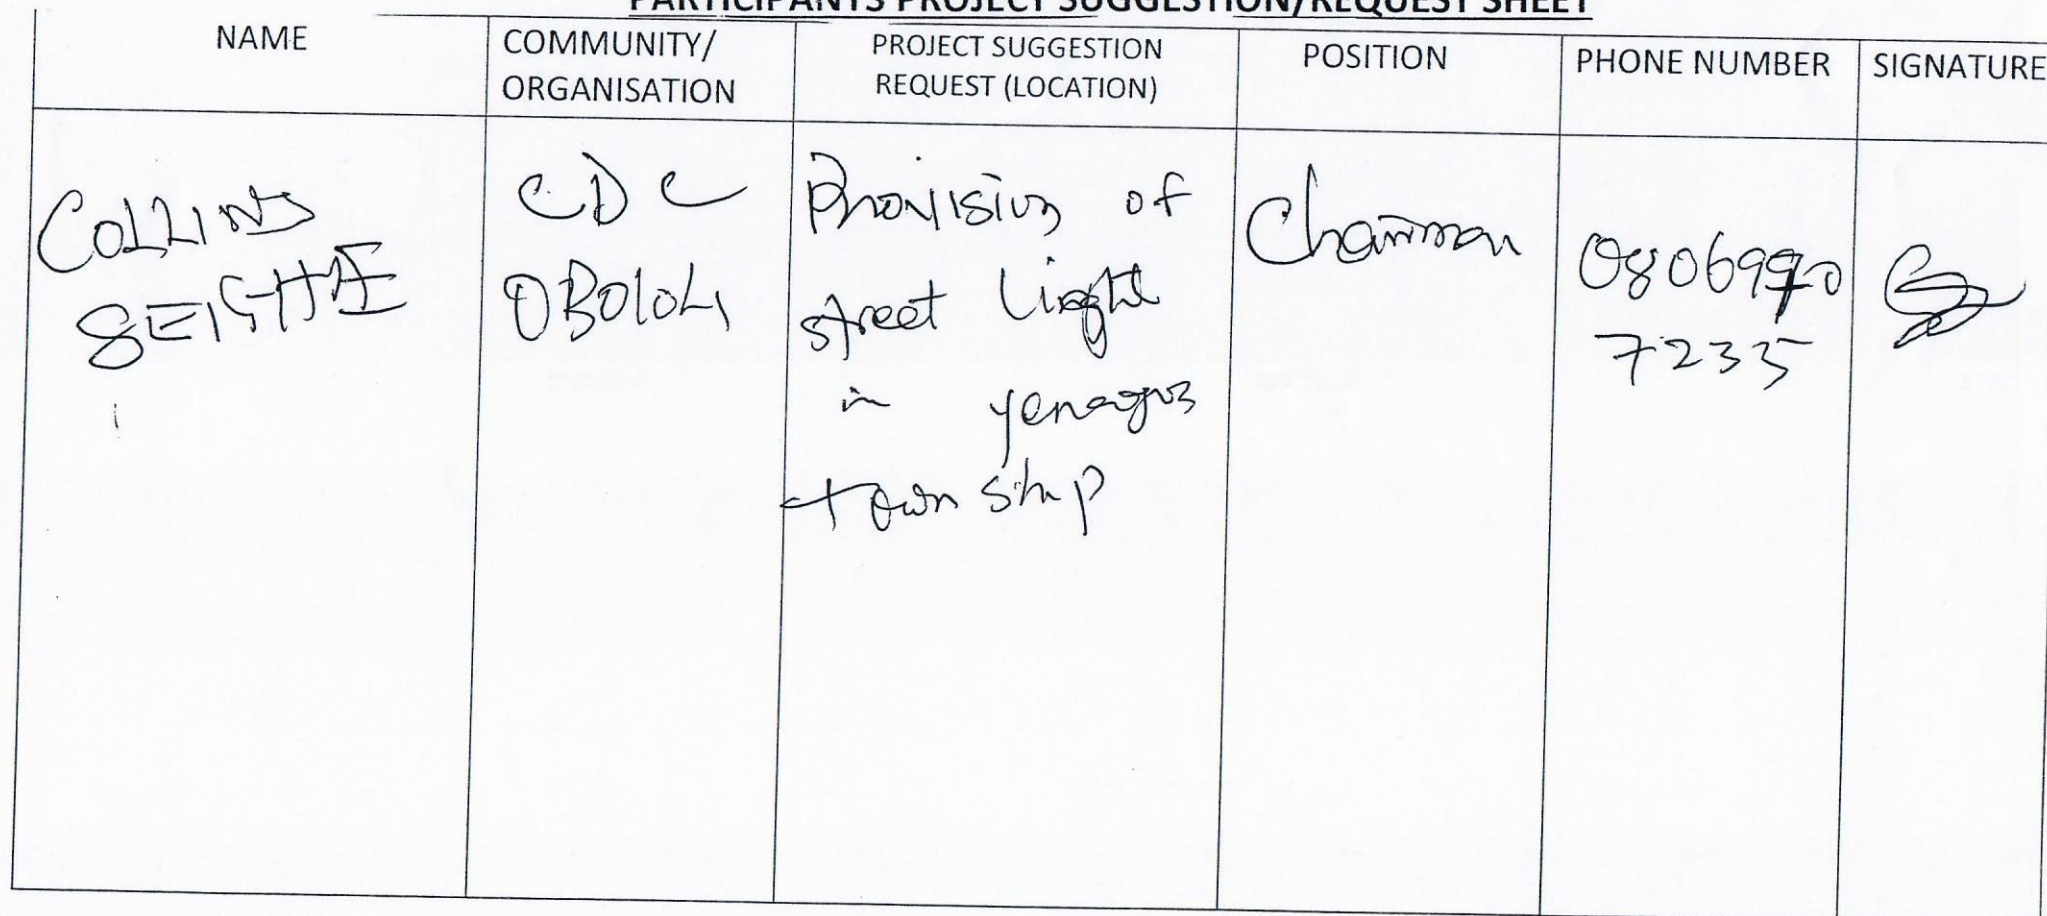 PARTICIPANTS PROJECT SUGGESTION/REQUEST SHEET
NAME
COMMUNITY/
ORGANISATION
PROJECT SUGGESTION
REQUEST (LOCATION)
POSITION
PHONE NUMBER
SIGNATURE
COLLINS
CDC
OBOLOLI
Provision of
street Light
in yenagoa
township
Chairman
7235